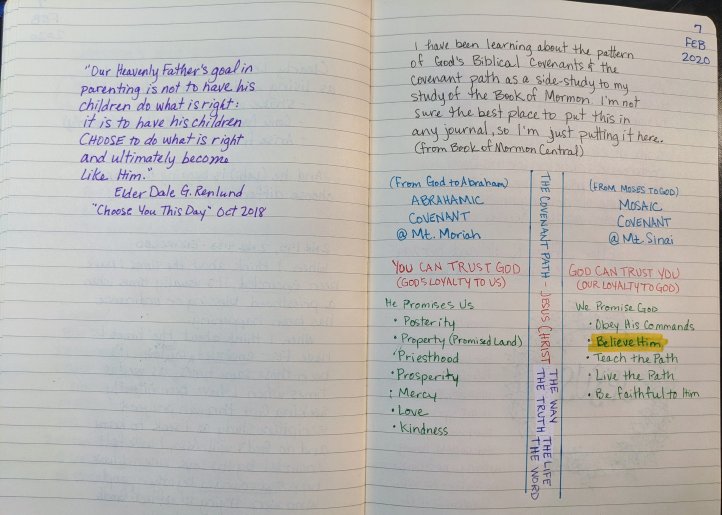 "Our Heavenly Father's goal in
parenting is not to have his
children do what is right;
it is to have his children
CHOOSE to do what is right
and ultimately become
like Him."
Elder Dale G. Renlund
"Choose You This Day" Oct 2018
7
FEB
2020
I have been learning about the pattern
of God's Biblical Covenants & the
covenant path as a side-study to my
study of the Book of Mormon. I'm not
sure the best place to put this in
any journal, so I'm just putting it here.
(from Book of Mormon Central)
(From God to Abraham)
ABRAHAMIC
COVENANT
@ Mt. Moriah
YOU CAN TRUST GOD
(GOD'S LOYALTY TO US)
He Promises Us
• Posterity
• Property (Promised Land)
• Priesthood
• Prosperity
• Mercy
• Love
• Kindness
THE COVENANT PATH - JESUS CHRIST
THE WAY THE LIFE
THE TRUTH THE WORD
(FROM MOSES TO GOD)
MOSAIC
COVENANT
@ Mt. Sinai
GOD CAN TRUST YOU
(OUR LOYALTY TO GOD)
We Promise God
• Obey His Commands
• Believe Him
• Teach the Path
• Live the Path
• Be faithful to Him